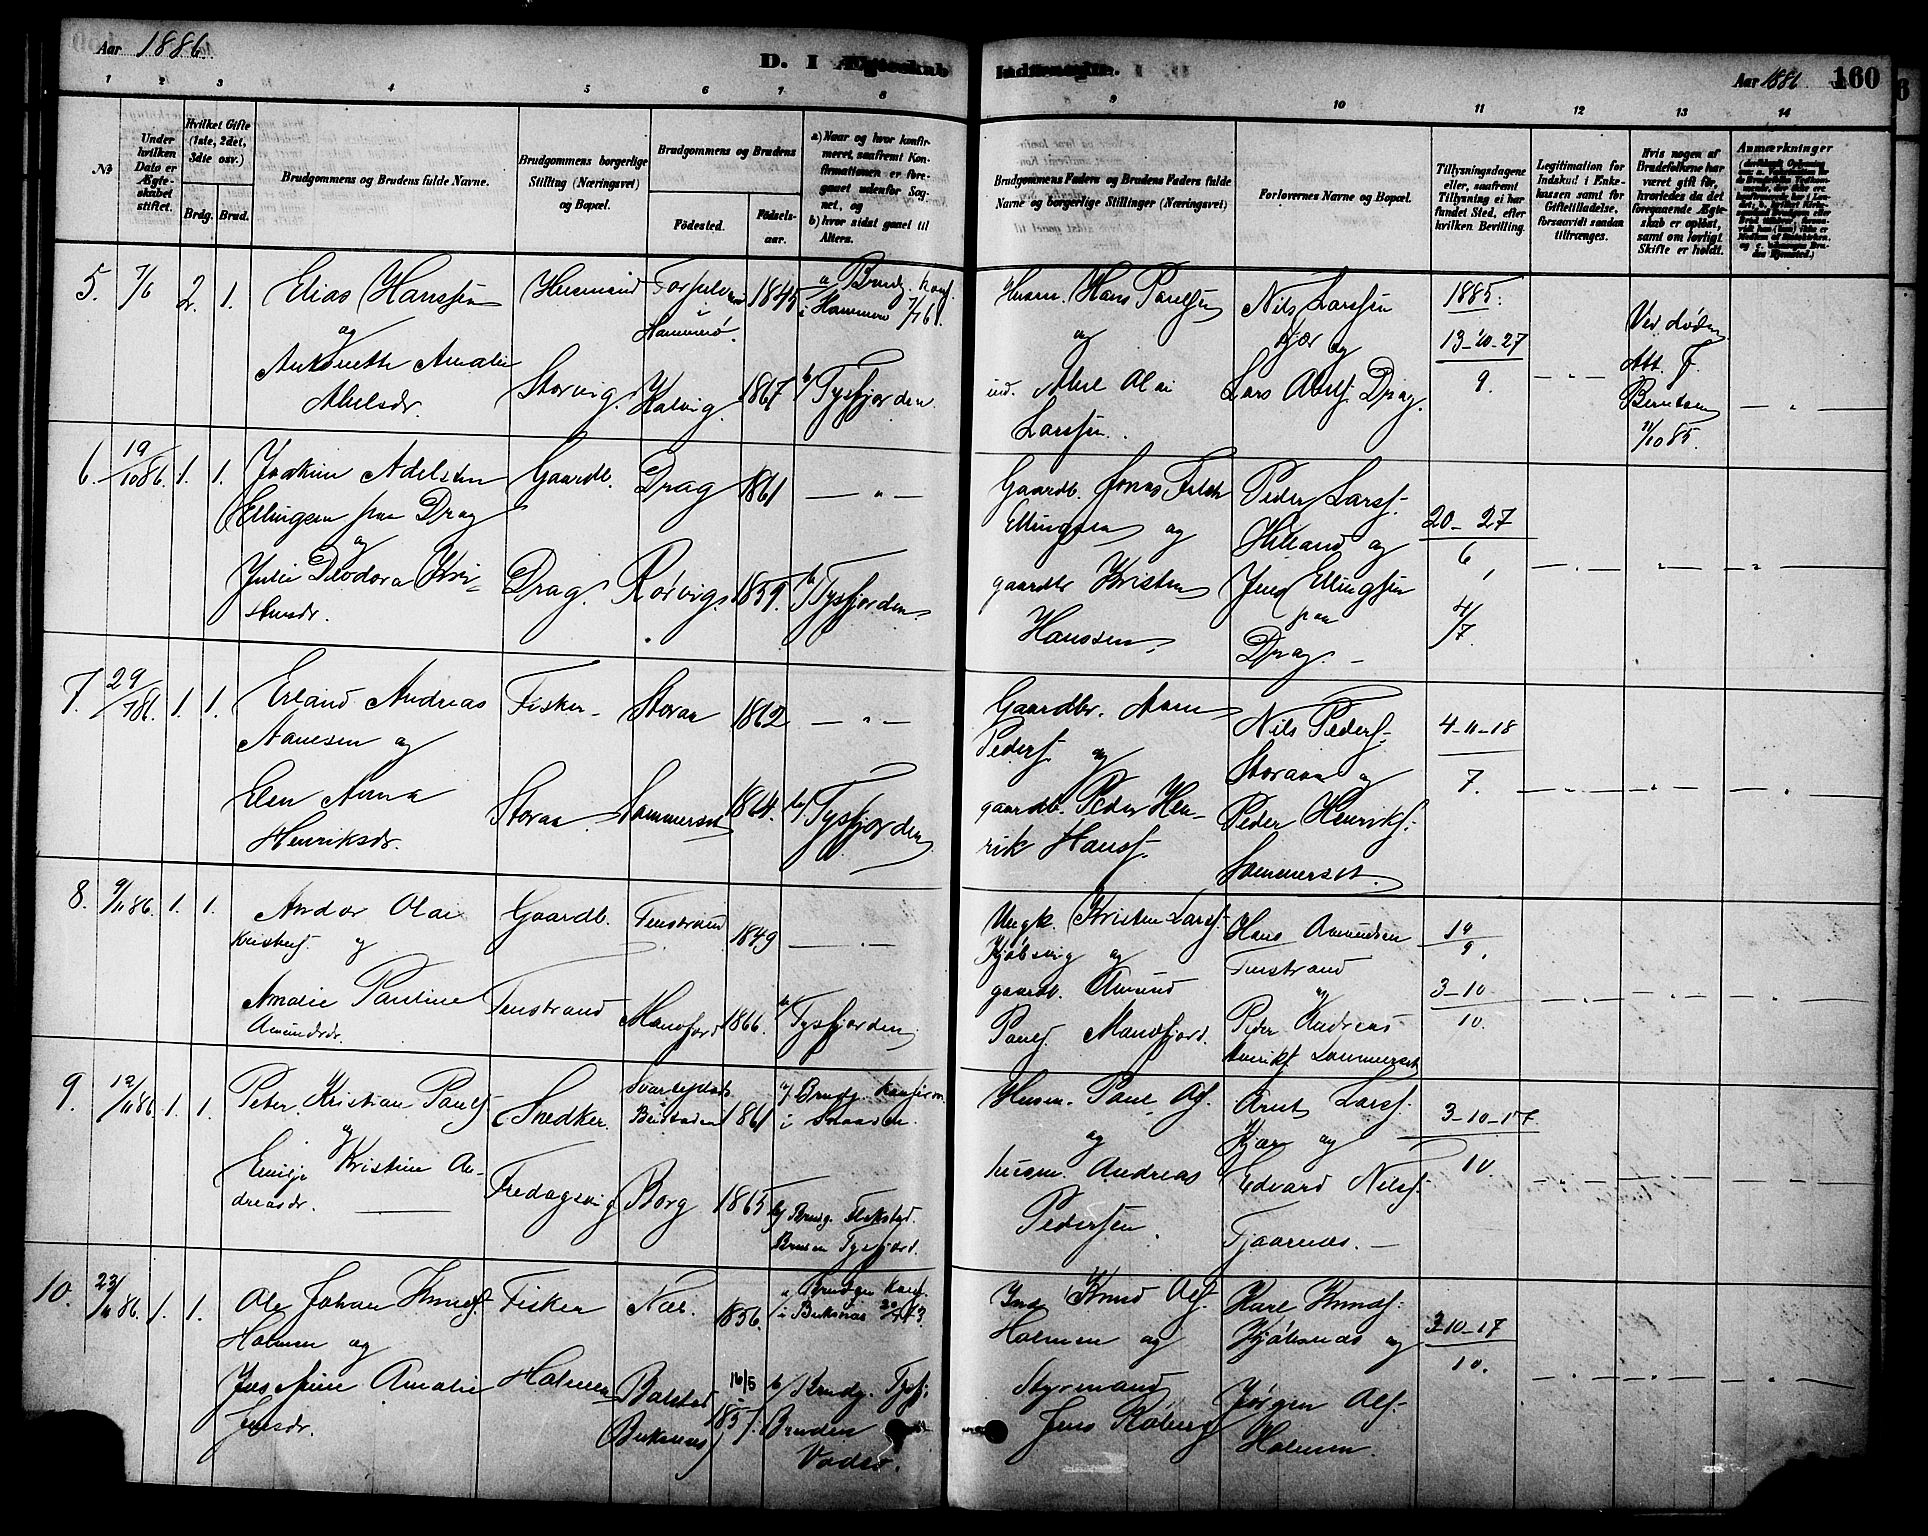 Aar 1886.
D. I Ægteskab
Indtrængte.
Aar 1886
160
1 2 3 4 5 6 7 8
9 10 11 12 13 14
No
Under hvilken Dato er Ægteskabet stiftet.
Hvilket Gifte (1ste, 2det, 3die osv.)
Brdg. Brud.
Brudgommens og Brudens fulde Navne.
Brudgommens borgerlige Stilling (Næringsvei) og Bopæl.
Brudgommens og Brudens
Fødested.
Fødselsaar.
a) Naar og hvor konfirmeret, saafremt Konfirmationen er foregaaet udenfor Sognet, og
b) hvor sidst gaaet til Alters.
Brudgommens Faders og Brudens Faders fulde Navne og borgerlige Stillinger (Næringsvei)
Forlovernes Navne og Bopæl.
Tillysningsdagene eller, saafremt Tillysning ei har fundet Sted, efter hvilken Bevilling.
Legitimation for Indskud i Enkekassen samt for Giftetilladelse, forsaavidt saadan tiltrænges.
Hvis nogen af Brudefolkene har været gift før, hvorledes da det foregaaende Ægteskab er opløst, samt om lovligt Skifte er holdt.
Anmærkninger
5. 7/6 2. 1.
Elias Hanssen
og
Antonette Amalie
Abelsdr.
Husmand
Storvig.
i
Hammerø.
Kalvig.
1845
1867
a Brudg. konf.
i Hammerø
b/ Tysfjorden.
Husm. Hans Paulsen
og
ind. Abel Olai
Larssen.
Nils Larssen
Kjær og
Lars Abelsf Drag.
1885:
13-20-27
9.
Ved døden
Att. F.
Berntsen
10 85.
6. 19/10 86. 1. 1.
Joakim Adelsten
Ellingsen paa Drag
og
Julie Deodora Kri-
stensdr.
Gaardb.
Drag.
Drag
Rørvig
1861
1859.
b/ Tysfjorden.
Gaardb. Jonas Feldt
Ellingsen og
gaardbr Kristen
Hanssen.
Peder Larsf.
Helland og
Jens Ellingsen
paa
Drag.
20-27
6,
4/7.
7. 29/7 86. 1. 1.
Erland Andreas
Aanesen og
Elen Anna
Henriksdr.
Fisker
Storaa.
Storaa
Sommerset
1862
1864.
b/ Tysfjorden
Gaardbr. Aane
Pedersf. og
gaardb. Peder Hen-
rik Hansf.
Nils Pedersf.
Storaaa og
Peder Henriksf.
Sommerset.
4-11-18
7.
8. 9/11 86. 1. 1.
Andor Olai
Kristensf. og
Amalie Pauline
Amundsdr.
Gaardb.
Tenstrand
Tenstrand
Manofjord
1849
1866.
b/ Tysfjorden
Ungk. Kristen Larsf.
Kjøbsvig og
gaardb. Amund
Paulsf. Manofjord.
Hans Amundsen
Tenstrand
og
Peder Andreas
Henriksf. Sommerset
19/9,
3-10
10.
9. 12/11 86. 1. 1.
Peter Kristian Paulsf.
og
Emilje Kristine An-
dreasdr.
Snedker.
Fredagsvig
Borg
1861
1865
a/ Brudg. konfirm.
i
b/ Brudg. Flakstad.
Bruden Tysfjord.
Husm. Paul Olsf.
og
husm. Andreas
Pedersen.
Arnt Larsf.
Kjær og
Edvard Nilsf.
Tjaarnes.
3-10-17
10.
10. 23/11 86. 1. 1.
Ole Johan Knudsf.
Holmen og
Josefine Amalie
Jensdr.
Fisker
Holmen
Næs.
Balstad
Buksnes
1856.
16/5
1857.
a Brudgm konf.
i Buksnes
b/ Brudg. Tysfj.
Bruden
Vadsø.
Ind. Knud Olsf.
Holmen og
Styrmand
Jens Roberg
Karl Knudsf.
Kjøbsnes og
Jørgen Olsf.
Holmen.
3-10-17
10.